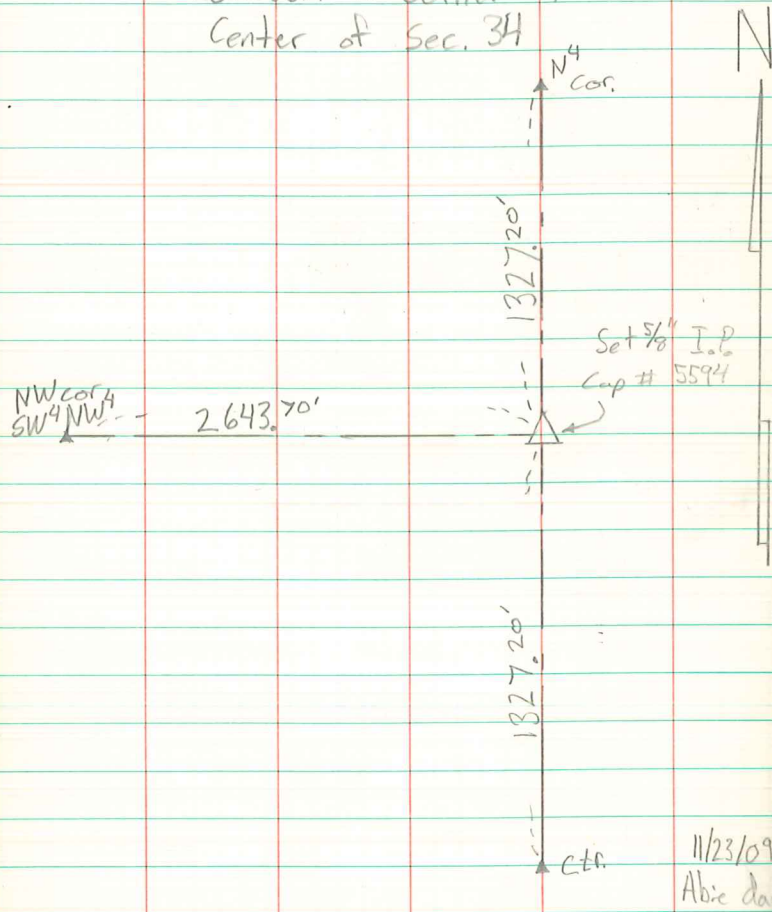 Center of Sec. 34
N
N⁴
Cor.
1327.20'
Set 5/8" I.P.
Cap # 5594
NW cor.
SW⁴NW⁴
2643.70'
1327.20'
Ctr.
11/23/09
Abie